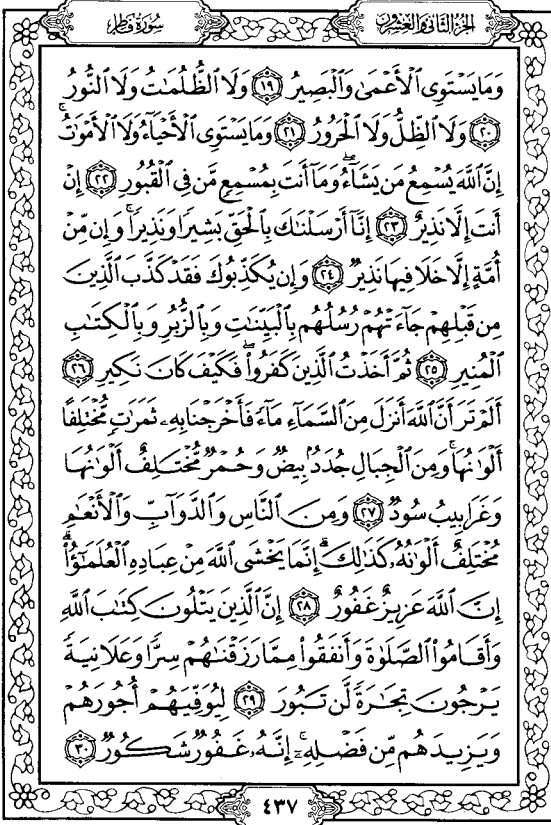 الجزء الثاني والعشرون
سورة فاطر
وَمَا يَسْتَوِى ٱلْأَعْمَىٰ وَٱلْبَصِيرُ ١٩ وَلَا ٱلظُّلُمَٰتُ وَلَا ٱلنُّورُ
٢٠ وَلَا ٱلظِّلُّ وَلَا ٱلْحَرُورُ ٢١ وَمَا يَسْتَوِى ٱلْأَحْيَآءُ وَلَا ٱلْأَمْوَٰتُ ۚ
إِنَّ ٱللَّهَ يُسْمِعُ مَن يَشَآءُ ۖ وَمَآ أَنتَ بِمُسْمِعٍ مَّن فِى ٱلْقُبُورِ ٢٢ إِنْ
أَنتَ إِلَّا نَذِيرٌ ٢٣ إِنَّآ أَرْسَلْنَٰكَ بِٱلْحَقِّ بَشِيرًا وَنَذِيرًا ۚ وَإِن مِّنْ
أُمَّةٍ إِلَّا خَلَا فِيهَا نَذِيرٌ ٢٤ وَإِن يُكَذِّبُوكَ فَقَدْ كَذَّبَ ٱلَّذِينَ
مِن قَبْلِهِمْ جَآءَتْهُمْ رُسُلُهُم بِٱلْبَيِّنَٰتِ وَبِٱلزُّبُرِ وَبِٱلْكِتَٰبِ
ٱلْمُنِيرِ ٢٥ ثُمَّ أَخَذْتُ ٱلَّذِينَ كَفَرُوا۟ ۖ فَكَيْفَ كَانَ نَكِيرِ ٢٦
أَلَمْ تَرَ أَنَّ ٱللَّهَ أَنزَلَ مِنَ ٱلسَّمَآءِ مَآءً فَأَخْرَجْنَا بِهِۦ ثَمَرَٰتٍ مُّخْتَلِفًا
أَلْوَٰنُهَا ۚ وَمِنَ ٱلْجِبَالِ جُدَدٌۢ بِيضٌ وَحُمْرٌ مُّخْتَلِفٌ أَلْوَٰنُهَا
وَغَرَابِيبُ سُودٌ ٢٧ وَمِنَ ٱلنَّاسِ وَٱلدَّوَآبِّ وَٱلْأَنْعَٰمِ
مُخْتَلِفٌ أَلْوَٰنُهُۥ كَذَٰلِكَ ۗ إِنَّمَا يَخْشَى ٱللَّهَ مِنْ عِبَادِهِ ٱلْعُلَمَٰٓؤُا۟ ۗ
إِنَّ ٱللَّهَ عَزِيزٌ غَفُورٌ ٢٨ إِنَّ ٱلَّذِينَ يَتْلُونَ كِتَٰبَ ٱللَّهِ
وَأَقَامُوا۟ ٱلصَّلَوٰةَ وَأَنفَقُوا۟ مِمَّا رَزَقْنَٰهُمْ سِرًّا وَعَلَانِيَةً
يَرْجُونَ تِجَٰرَةً لَّن تَبُورَ ٢٩ لِيُوَفِّيَهُمْ أُجُورَهُمْ
وَيَزِيدَهُم مِّن فَضْلِهِۦٓ ۚ إِنَّهُۥ غَفُورٌ شَكُورٌ ٣٠
٤٣٧